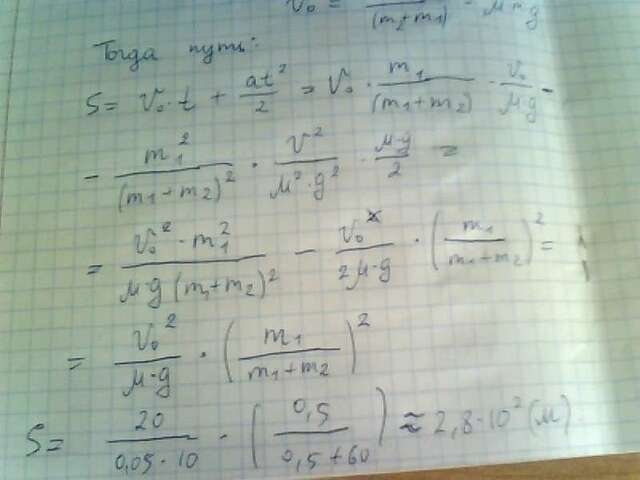 V₀ = ─/(m₂+m₁) - μ·m g
Тогда путь:
S = V₀·t + at²/2 = V₀ · m₁/(m₁+m₂) · V₀/(μ·g) -
- m₁²/(m₁+m₂)² · V²/(μ²·g²) · μ·g/2 =
= V₀²·m₁²/(μ·g (m₁+m₂)²) - V₀²/(2μ·g) · (m₁/(m₁+m₂))² =
= V₀²/(μ·g) · (m₁/(m₁+m₂))²
S = 20/(0,05·10) · (0,5/(0,5+60)) ≈ 2,8·10² (м).